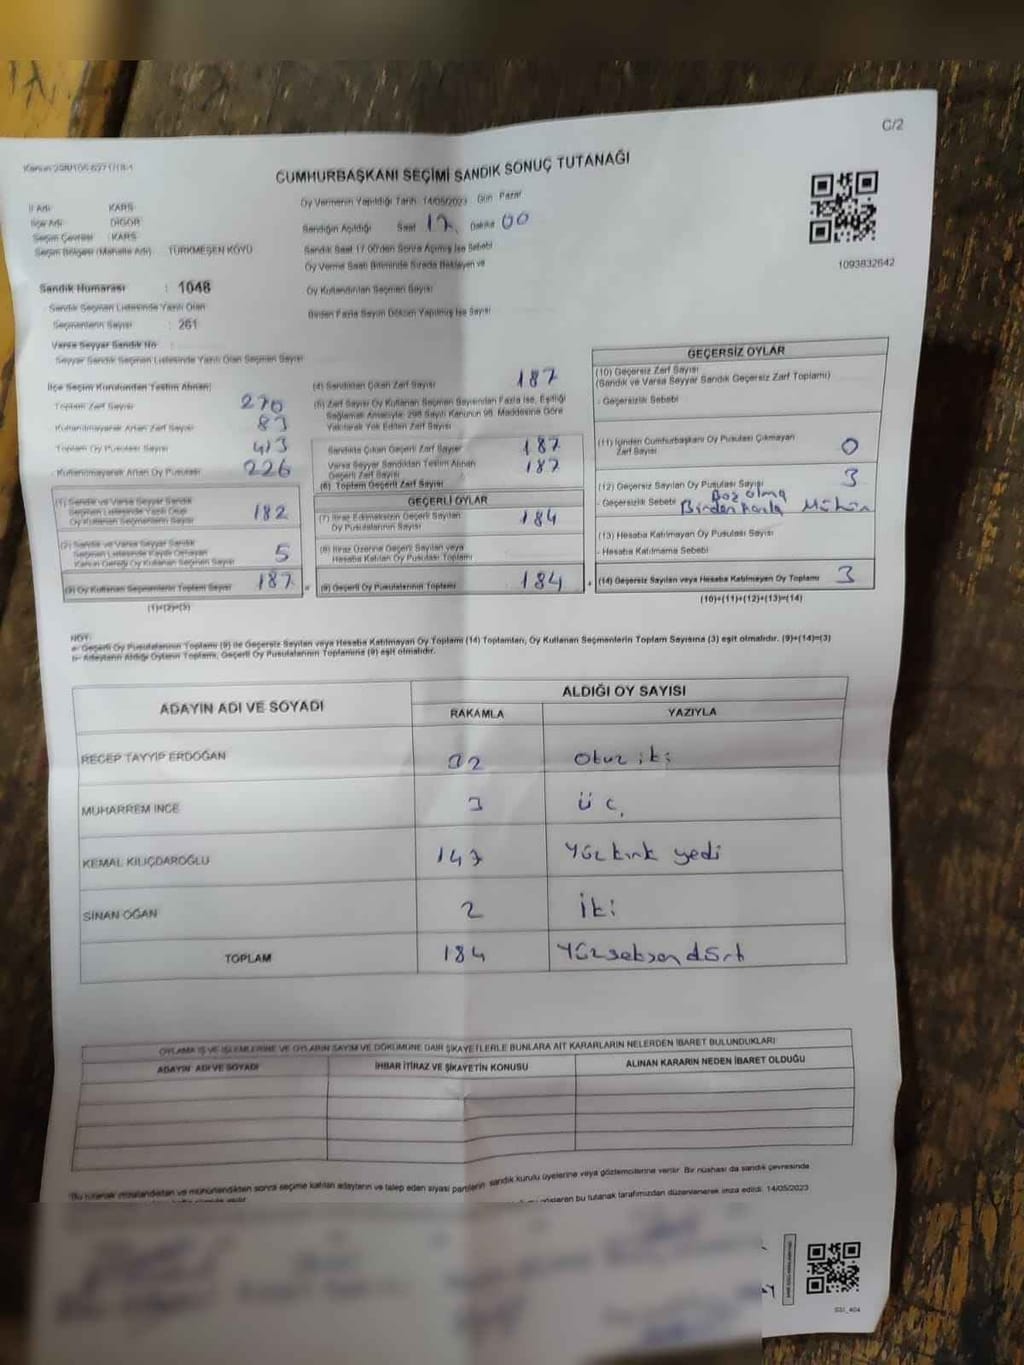 C/2
CUMHURBAŞKANI SEÇİMİ SANDIK SONUÇ TUTANAĞI
1093832642
İl Adı : KARS
İlçe Adı : DİGOR
Seçim Çevresi : KARS
Seçim Bölgesi (Mahalle Adı) : TÜRKMEŞEN KÖYÜ
Sandık Numarası : 1048
Sandık Seçmen Listesinde Yazılı Olan
Seçmenlerin Sayısı : 261
Varsa Seyyar Sandık No
Seyyar Sandık Seçmen Listesinde Yazılı Olan Seçmen Sayısı
Oy Vermenin Yapıldığı Tarih 14/05/2023 Gün Pazar
Sandığın Açıldığı Saat 17 Dakika 00
Sandık Saat 17.00'den Sonra Açılmış İse Sebebi
Oy Verme Saati Bitiminde Sırada Bekleyen ve
Oy Kullandırılan Seçmen Sayısı
Birden Fazla Sayım Döküm Yapılmış İse Sayısı
İlçe Seçim Kurulundan Teslim Alınan:
Toplam Zarf Sayısı 270
Kullanılmayarak Artan Zarf Sayısı 83
Toplam Oy Pusulası Sayısı 413
Kullanılmayarak Artan Oy Pusulası 226
(1) Sandık ve Varsa Seyyar Sandık
Seçmen Listesinde Yazılı Olup
Oy Kullanan Seçmenlerin Sayısı 182
(2) Sandık ve Varsa Seyyar Sandık
Seçmen Listesinde Kayıtlı Olmayan
Kanun Gereği Oy Kullanan Seçmen Sayısı 5
(3) Oy Kullanan Seçmenlerin Toplam Sayısı 187
(1)+(2)=(3)
(4) Sandıktan Çıkan Zarf Sayısı 187
(5) Zarf Sayısı Oy Kullanan Seçmen Sayısından Fazla İse, Eşitliği
Sağlamak Amacıyla; 298 Sayılı Kanunun 98. Maddesine Göre
Yakılarak Yok Edilen Zarf Sayısı
Sandıkta Çıkan Geçerli Zarf Sayısı 187
Varsa Seyyar Sandıktan Teslim Alınan
Geçerli Zarf Sayısı
(6) Toplam Geçerli Zarf Sayısı 187
GEÇERLİ OYLAR
(7) İtiraz Edilmeksizin Geçerli Sayılan
Oy Pusulalarının Sayısı 184
(8) İtiraz Üzerine Geçerli Sayılan veya
Hesaba Katılan Oy Pusulası Toplamı
(9) Geçerli Oy Pusulalarının Toplamı 184
GEÇERSİZ OYLAR
(10) Geçersiz Zarf Sayısı
(Sandık ve Varsa Seyyar Sandık Geçersiz Zarf Toplamı)
- Geçersizlik Sebebi
(11) İçinden Cumhurbaşkanı Oy Pusulası Çıkmayan
Zarf Sayısı 0
(12) Geçersiz Sayılan Oy Pusulası Sayısı 3
- Geçersizlik Sebebi Boz olma
Birden Fazla Mühür
(13) Hesaba Katılmayan Oy Pusulası Sayısı
- Hesaba Katılmama Sebebi
(14) Geçersiz Sayılan veya Hesaba Katılmayan Oy Toplamı 3
(10)+(11)+(12)+(13)=(14)
NOT:
a- Geçerli Oy Pusulalarının Toplamı (9) ile Geçersiz Sayılan veya Hesaba Katılmayan Oy Toplamı (14) Toplamları, Oy Kullanan Seçmenlerin Toplam Sayısına (3) eşit olmalıdır. (9)+(14)=(3)
b- Adayların Aldığı Oyların Toplamı, Geçerli Oy Pusulalarının Toplamına (9) eşit olmalıdır.
ADAYIN ADI VE SOYADI
ALDIĞI OY SAYISI
RAKAMLA YAZIYLA
RECEP TAYYİP ERDOĞAN 32 Otuz iki
MUHARREM İNCE 3 Üç
KEMAL KILIÇDAROĞLU 147 Yüz kırk yedi
SİNAN OĞAN 2 İki
TOPLAM 184 Yüzseksendört
OYLAMA İŞ VE İŞLEMLERİNE VE OYLARIN SAYIM VE DÖKÜMÜNE DAİR ŞİKAYETLERLE BUNLARA AİT KARARLARIN NELERDEN İBARET BULUNDUKLARI
ADAYIN ADI VE SOYADI İHBAR İTİRAZ VE ŞİKAYETİN KONUSU ALINAN KARARIN NEDEN İBARET OLDUĞU
Bu tutanak imzalandıktan ve mühürlendikten sonra seçime katılan adayların ve talep eden siyasi partilerin sandık kurulu üyelerine veya gözlemcilerine verilir. Bir nüshası da sandık çevresinde
bu tutanak tarafımızdan düzenlenerek imza edildi. 14/05/2023